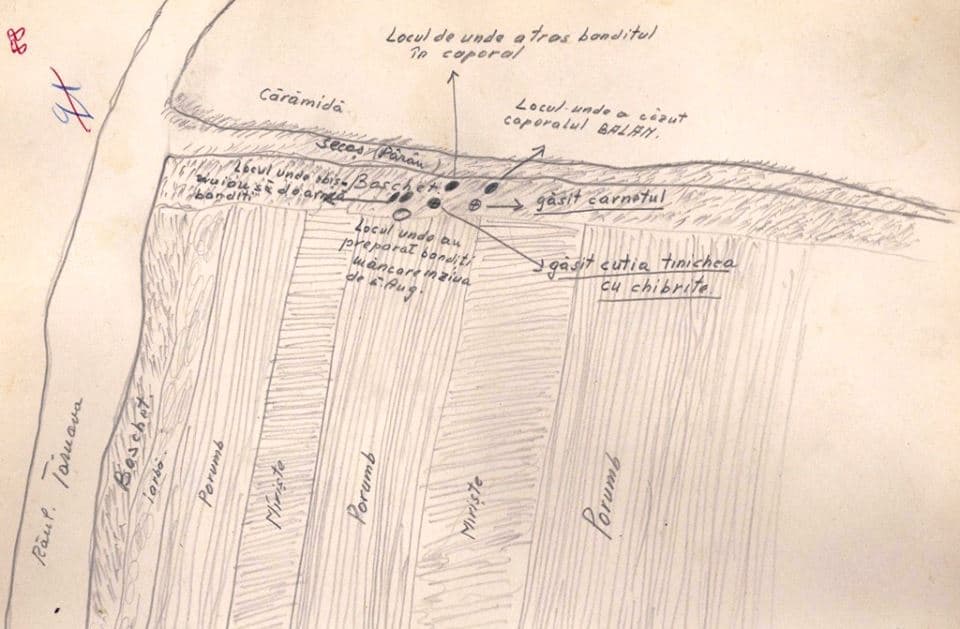 Locul de unde a tras banditul
în caporal
Cărămidă
Locul unde a căzut
caporalul BALAN.
Secaș (Părău)
Locul unde obiș-
nuiau să doarmă
bandiți
Boschet
găsit carnetul
Locul unde au
preparat bandiți
mâncare in ziua
de 5 Aug.
găsit cutia tinichea
cu chibrite.
Râul Tărnava
Boschet
iarbă.
Porumb
Miriște
Porumb
Miriște
Porumb